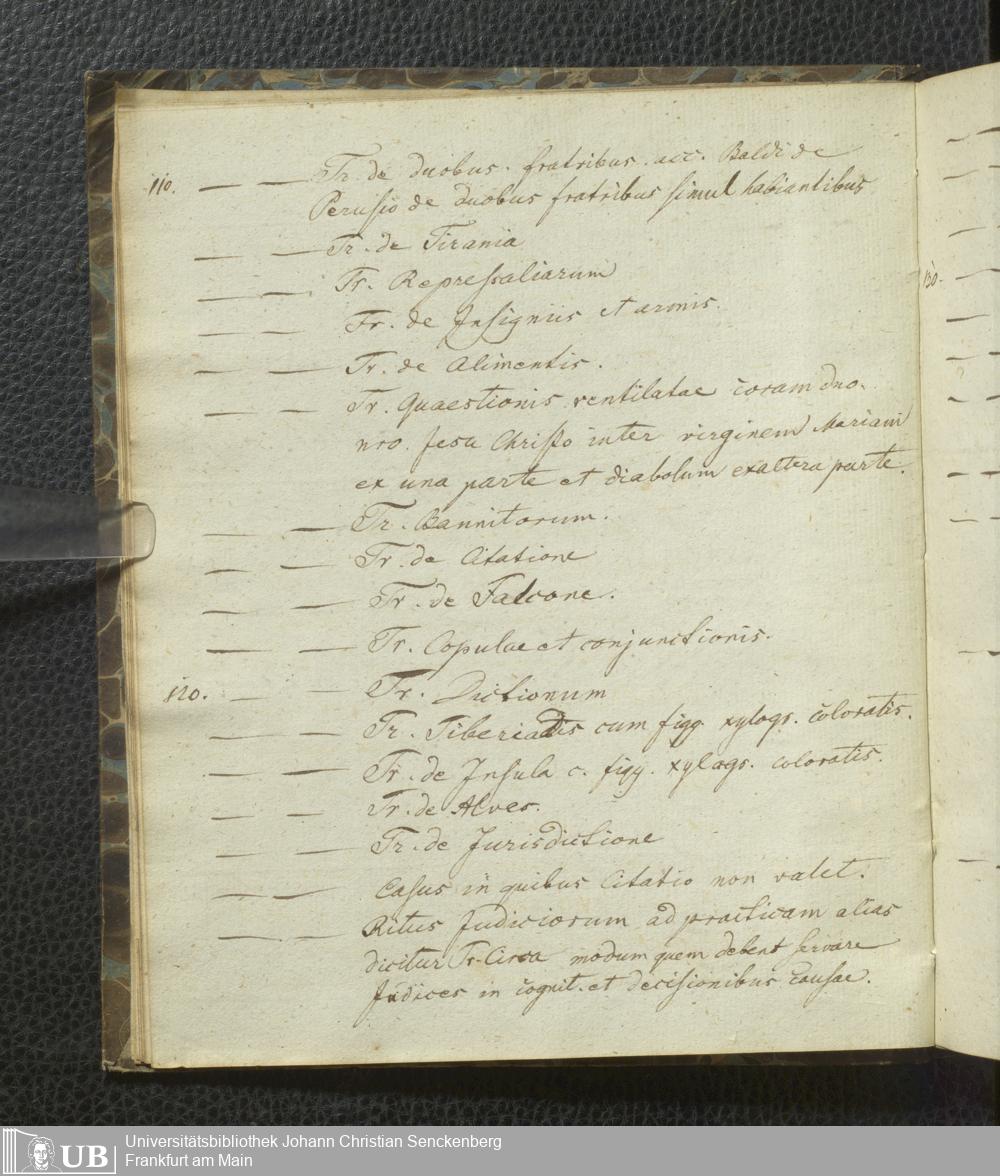 110. — — Tr. de duobus. fratribus. acc. Baldi de
Perusio de duobus fratribus simul habiantibus
— — Tr. de Tirania
— — Tr. Repressaliarum
— — Tr. de Insigniis et armis.
— — Tr. de Alimentis.
— — Tr. Quaestionis ventilatae coram dno.
nro. Jesu Christo inter virginem Mariam
ex una parte et diabolum ex altera parte.
— — Tr. Bannitorum.
— — Tr. de Citatione
— — Tr. de Falcone.
— — Tr. Copulae et conjunctionis.
120. — — Tr. Dictionum
— — Tr. Tiberiadis cum figg. xylogr. coloratis.
— — Tr. de Insula c. figg. xylogr. coloratis.
— — Tr. de Alveo.
— — Tr. de Jurisdictione
— — Casus in quibus Citatio non valet.
— — Ritus Judiciorum ad practicam alias
dicitur Tr. Circa modum quem debent servare
Judices in cognit. et decisionibus causae.
130.
UB
Universitätsbibliothek Johann Christian Senckenberg
Frankfurt am Main